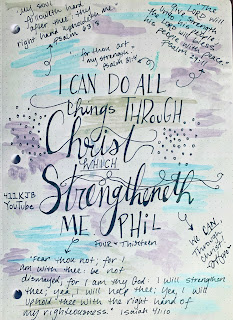 "My soul
followeth hard
after thee: thy
right hand upholdeth me"
Psalm 63:8
"for thou art
my strength."
Psalm 31:4
"The
LORD will
give strength
people
will bless
his people with
peace."
Psalm 29:11
I CAN DO ALL
things THROUGH
Christ
WHICH
Strengtheneth
ME PHIL
FOUR • Thirteen
4:13 KJB
YouTube
We CAN
Through
Christ
"Fear thou not; for I
am with thee: be not
dismayed; for I am thy God: I will strengthen
thee; yea, I will help thee; yea, I will
uphold thee with the right hand of
my righteousness." Isaiah 41:10